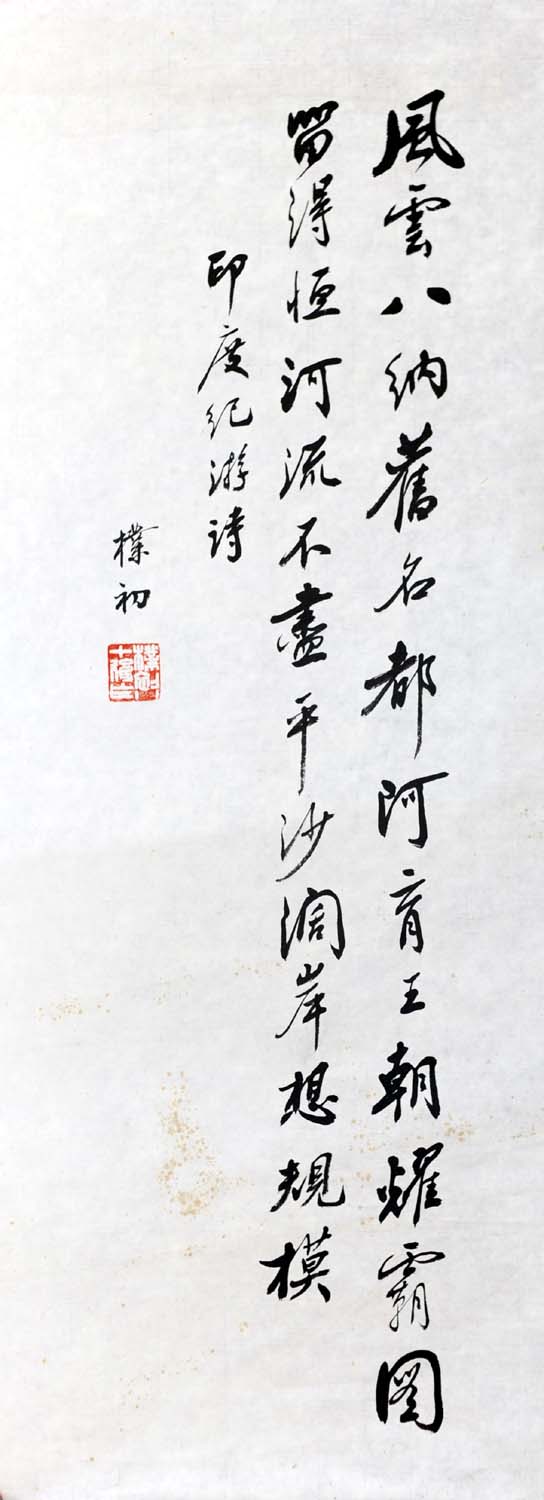 風雲八納舊名都阿育王朝燿霸圖
留得恒河流不盡平沙濶岸想規模
印度纪游诗
樸初